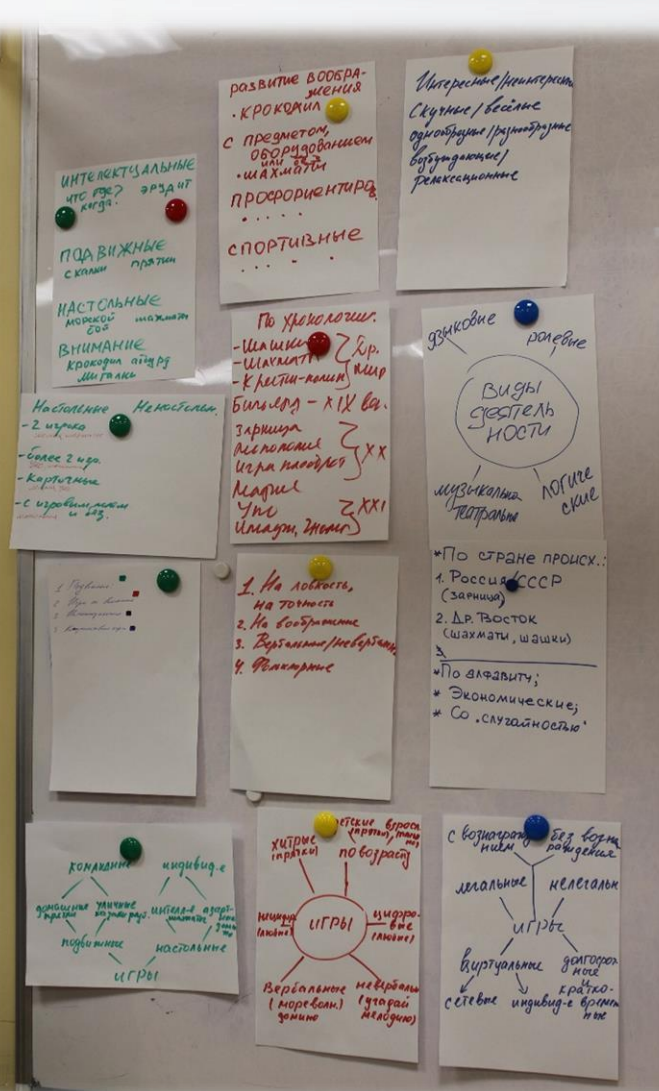 РАЗВИТИЕ ВООБРА-
ЖЕНИЯ
• КРОКОДИЛ
С ПРЕДМЕТОМ,
ОБОРУДОВАНИЕМ
ИЛИ БЕЗ
• ШАХМАТЫ
ПРОФОРИЕНТИРОВ.
СПОРТИВНЫЕ
Интересные/неинтересн
Скучные/весёлые
однообразные/разнообразные
возбуждающие/
релаксационные
ИНТЕЛЕКТУАЛЬНЫЕ
ЧТО ГДЕ? ЭРУДИТ
КОГДА.
ПОДВИЖНЫЕ
СКАЛКИ ПРЯТКИ
НАСТОЛЬНЫЕ
МОРСКОЙ ШАХМАТЫ
БОЙ
ВНИМАНИЕ
КРОКОДИЛ
МИГАЛКИ
По хронологии:
- Шашки
- Шахматы
- Крести-нолик
Др. мир
Бильярд - XIX в.
Зарница
Монополия
Игра наоборот
XX
Мафия
Уно
Имаджи,
XXI
ЯЗЫКОВЫЕ
РОЛЕВЫЕ
ВИДЫ
ДЕЯТЕЛЬ
НОСТИ
МУЗЫКАЛЬНО
ТЕАТРАЛЬНЫ
ЛОГИЧЕ
СКИЕ
Настольные Ненастольн.
- 2 игрока
- более 2 игр.
- Карточные
- С игровым полем
и без.
1. На ловкость,
на точность
2. На воображение
3. Вербальные/невербальн
4.
*По стране происх.:
1. Россия/СССР
(зарница)
2. Др. Восток
(шахматы, шашки)
3.
*По алфавиту;
* Экономические;
* Со „случайностью"
КОМАНДНЫЕ ИНДИВИД-Е
ДОМАШНИЕ УЛИЧНЫЕ ИНТЕЛЛ-Е АЗАРТ-
ПРЯТКИ ШАХМАТЫ
ПОДВИЖНЫЕ НАСТОЛЬНЫЕ
ИГРЫ
ХИТРЫЕ
(ПРЯТКИ)
ПО ВОЗРАСТУ
ИГРЫ
ЦИФРО-
ВЫЕ
(ЛЮБЫЕ)
ВЕРБАЛЬНЫЕ
(МОРЕ ВОЛН.)
ДОМИНО
НЕВЕРБАЛЬН
(УГАДАЙ
МЕЛОДИЮ)
С ВОЗНАГРАЖ
НИЕМ
БЕЗ ВОЗНА
РАЖДЕНИЯ
ЛЕГАЛЬНЫЕ НЕЛЕГАЛЬН
ИГРЫ
ВИРТУАЛЬНЫЕ
ДОЛГОСРОЧ
НЫЕ
И
КРАТКО-
СЕТЕВЫЕ ИНДИВИД-Е ВРЕМЕН
НЫЕ